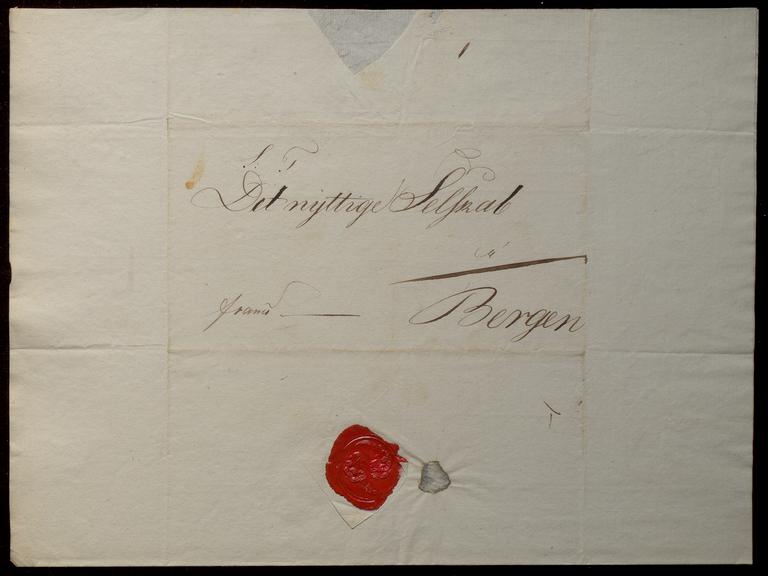 S. T.
Det nyttige Selskab
à
franco Bergen